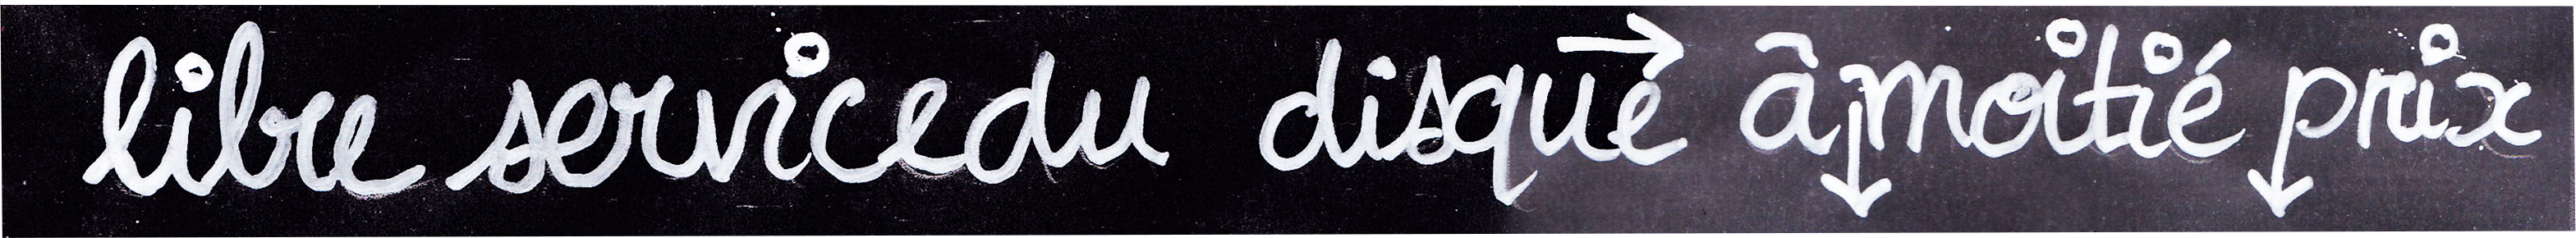 libre service du disque à moitié prix